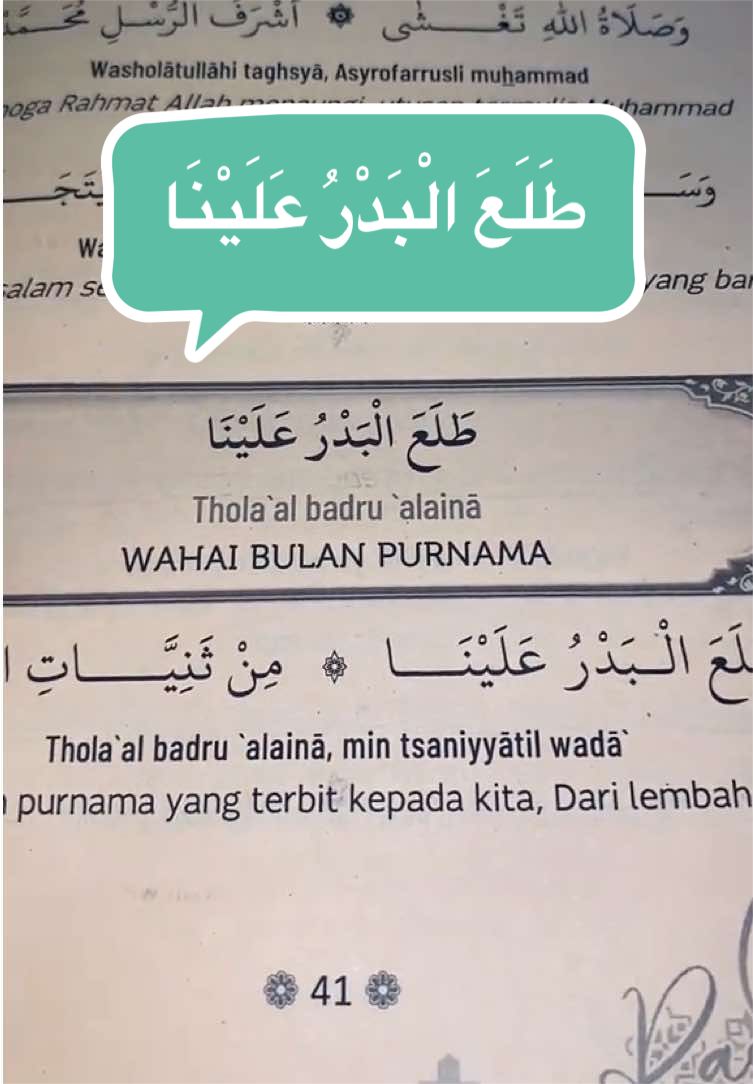 وَصَلَاةُ اللهِ تَغْـــشَى ۞ أَشْرَفَ الرُّسْـلِ مُحَـــمَّد
Washolātullāhi taghsyā, Asyrofarrusli muḥammad
Rahmat Allah Muhammad
طَلَعَ الْبَدْرُ عَلَيْنَا
yang
طَلَعَ الْبَدْرُ عَلَيْنَا
Thola`al badru `alainā
WAHAI BULAN PURNAMA
الْـبَدْرُ عَلَيْنَـــا ۞ مِنْ ثَنِيَّـــاتِ
Thola`al badru `alainā, min tsaniyyātil wadā`
purnama yang terbit kepada kita, Dari lembah
41